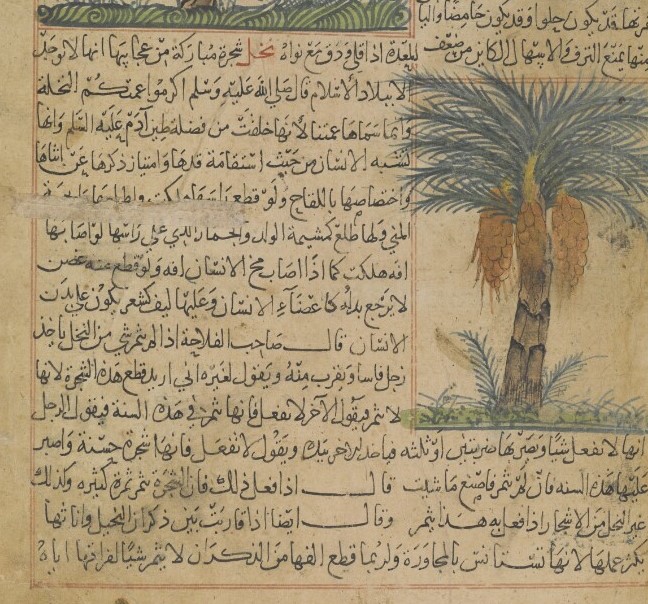 قد يكون حلوا وقد يكون حامضا
منها يمنع النزف والاسهال الكاين من ضعف
المعدة اذا قلي ودق مع نواه نخل شجرة مباركة من عجايبها انها لا توجد
الا ببلاد الاسلام قال صلي الله عليه وسلم اكرموا عمتكم النخلة
وانما سماها عمتنا لانها خلقت من فضلة طين آدم عليه السلم وانها
تشبه الانسان من حيث استقامة قدها وامتياز ذكرها عن انثاها
واختصاصها باللقاح ولو قطع راسها
المني ولها طلع كمشيمة الولد والجمار الذي علي راسها لو اصابها
افه هلكت كما اذا اصاب مخ الانسان افه ولو قطع منه غصن
لا يرجع بدله كاعضآء الانسان وعليها ليف كشعر يكون علي بدن
الانسان قال صاحب الفلاحة اذا لم يثمر شي من النخل ياخذ
رجل فاسا ويقرب منه ويقول لغيره اني اريد قطع هذه الشجرة لانها
لا تثمر فيقول الآخر لا تفعل فانها تثمر في هذه السنة فيقول الرجل
انها لا تفعل شيا ويضربها ضربتين او ثلثه فياخذ الاخر بيده ويقول لا تفعل فانها شجرة حسنة واصبر
عليها هذه السنه فان لم تثمر فاصنع ما شيت قال اذا فعل ذلك فان الشجرة تثمر ثمرة كثيره وكذلك
غير النخل من الاشجار اذا فعل به هذا يثمر وقال ايضا اذا قاربت بين ذكران النخيل واناثها
يكثر حملها لانها تستانس بالمجاورة ولربما قطع الفها من الذكران لا يثمر شيا لفراقها اياه